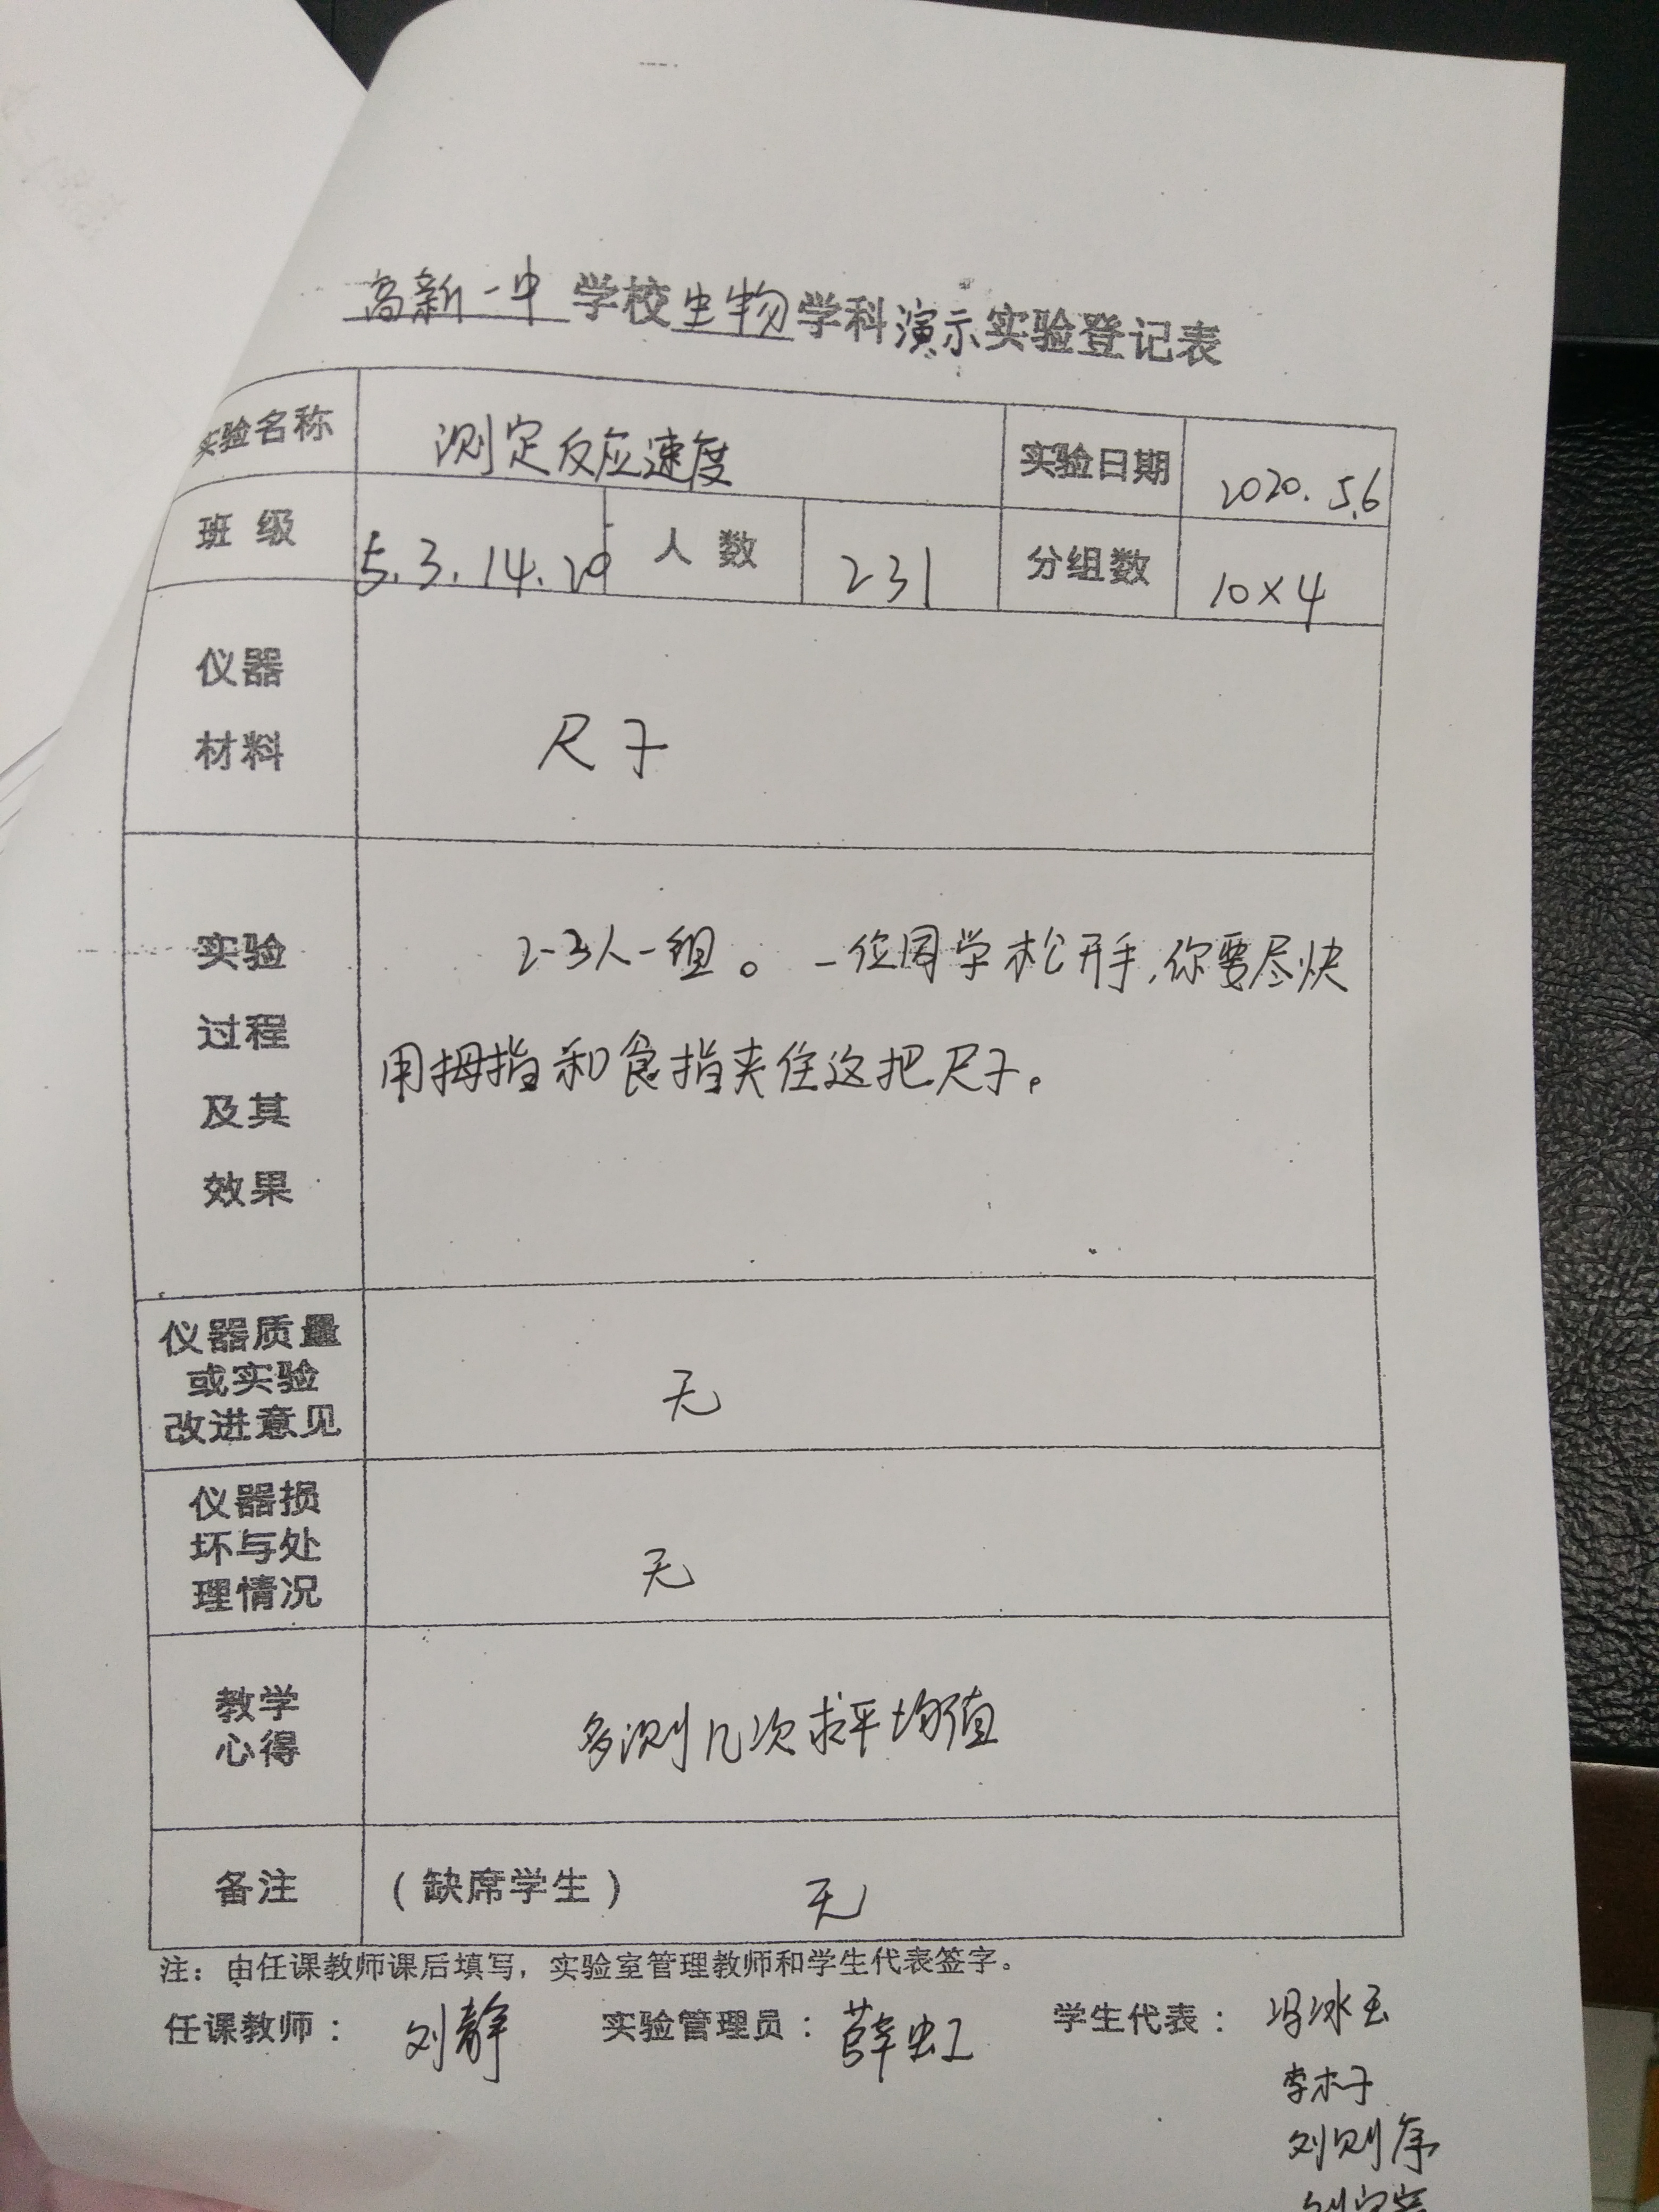 高新一中学校生物学科演示实验登记表
实验名称 测定反应速度 实验日期 2020.5.6
班级 5.3.14.20 人数 231 分组数 10×4
仪器
材料
尺子
实验
过程
及其
效果
2-3人一组。一位同学松开手,你要尽快
用拇指和食指夹住这把尺子。
仪器质量
或实验
改进意见
无
仪器损
坏与处
理情况
无
教学
心得
多测几次求平均值
备注 (缺席学生) 无
注：由任课教师课后填写，实验室管理教师和学生代表签字。
任课教师： 刘静 实验管理员： 薛虹 学生代表： 冯冰玉
李木子
刘则